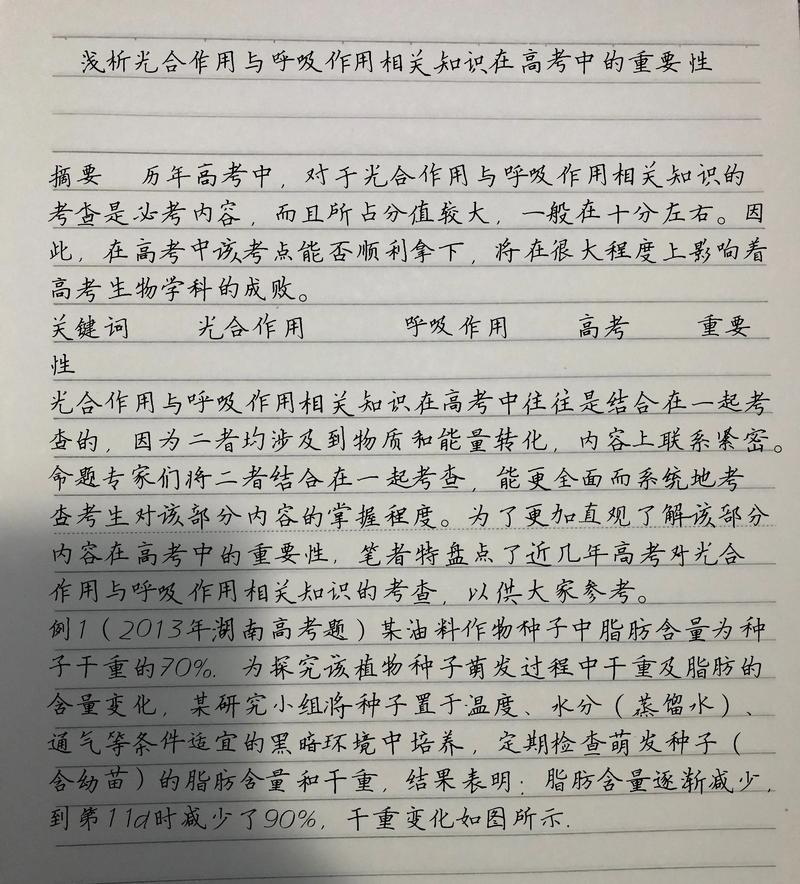 浅析光合作用与呼吸作用相关知识在高考中的重要性
摘要 历年高考中，对于光合作用与呼吸作用相关知识的
考查是必考内容，而且所占分值较大，一般在十分左右。因
此，在高考中该考点能否顺利拿下，将在很大程度上影响着
高考生物学科的成败。
关键词 光合作用 呼吸作用 高考 重要
性
光合作用与呼吸作用相关知识在高考中往往是结合在一起考
查的，因为二者均涉及到物质和能量转化，内容上联系紧密。
命题专家们将二者结合在一起考查，能更全面而系统地考
查考生对该部分内容的掌握程度。为了更加直观了解该部分
内容在高考中的重要性，笔者特盘点了近几年高考对光合
作用与呼吸作用相关知识的考查，以供大家参考。
例1（2013年湖南高考题）某油料作物种子中脂肪含量为种
子干重的70%．为探究该植物种子萌发过程中干重及脂肪的
含量变化，某研究小组将种子置于温度、水分（蒸馏水）、
通气等条件适宜的黑暗环境中培养，定期检查萌发种子（
含幼苗）的脂肪含量和干重，结果表明：脂肪含量逐渐减少，
到第11d时减少了90%，干重变化如图所示．